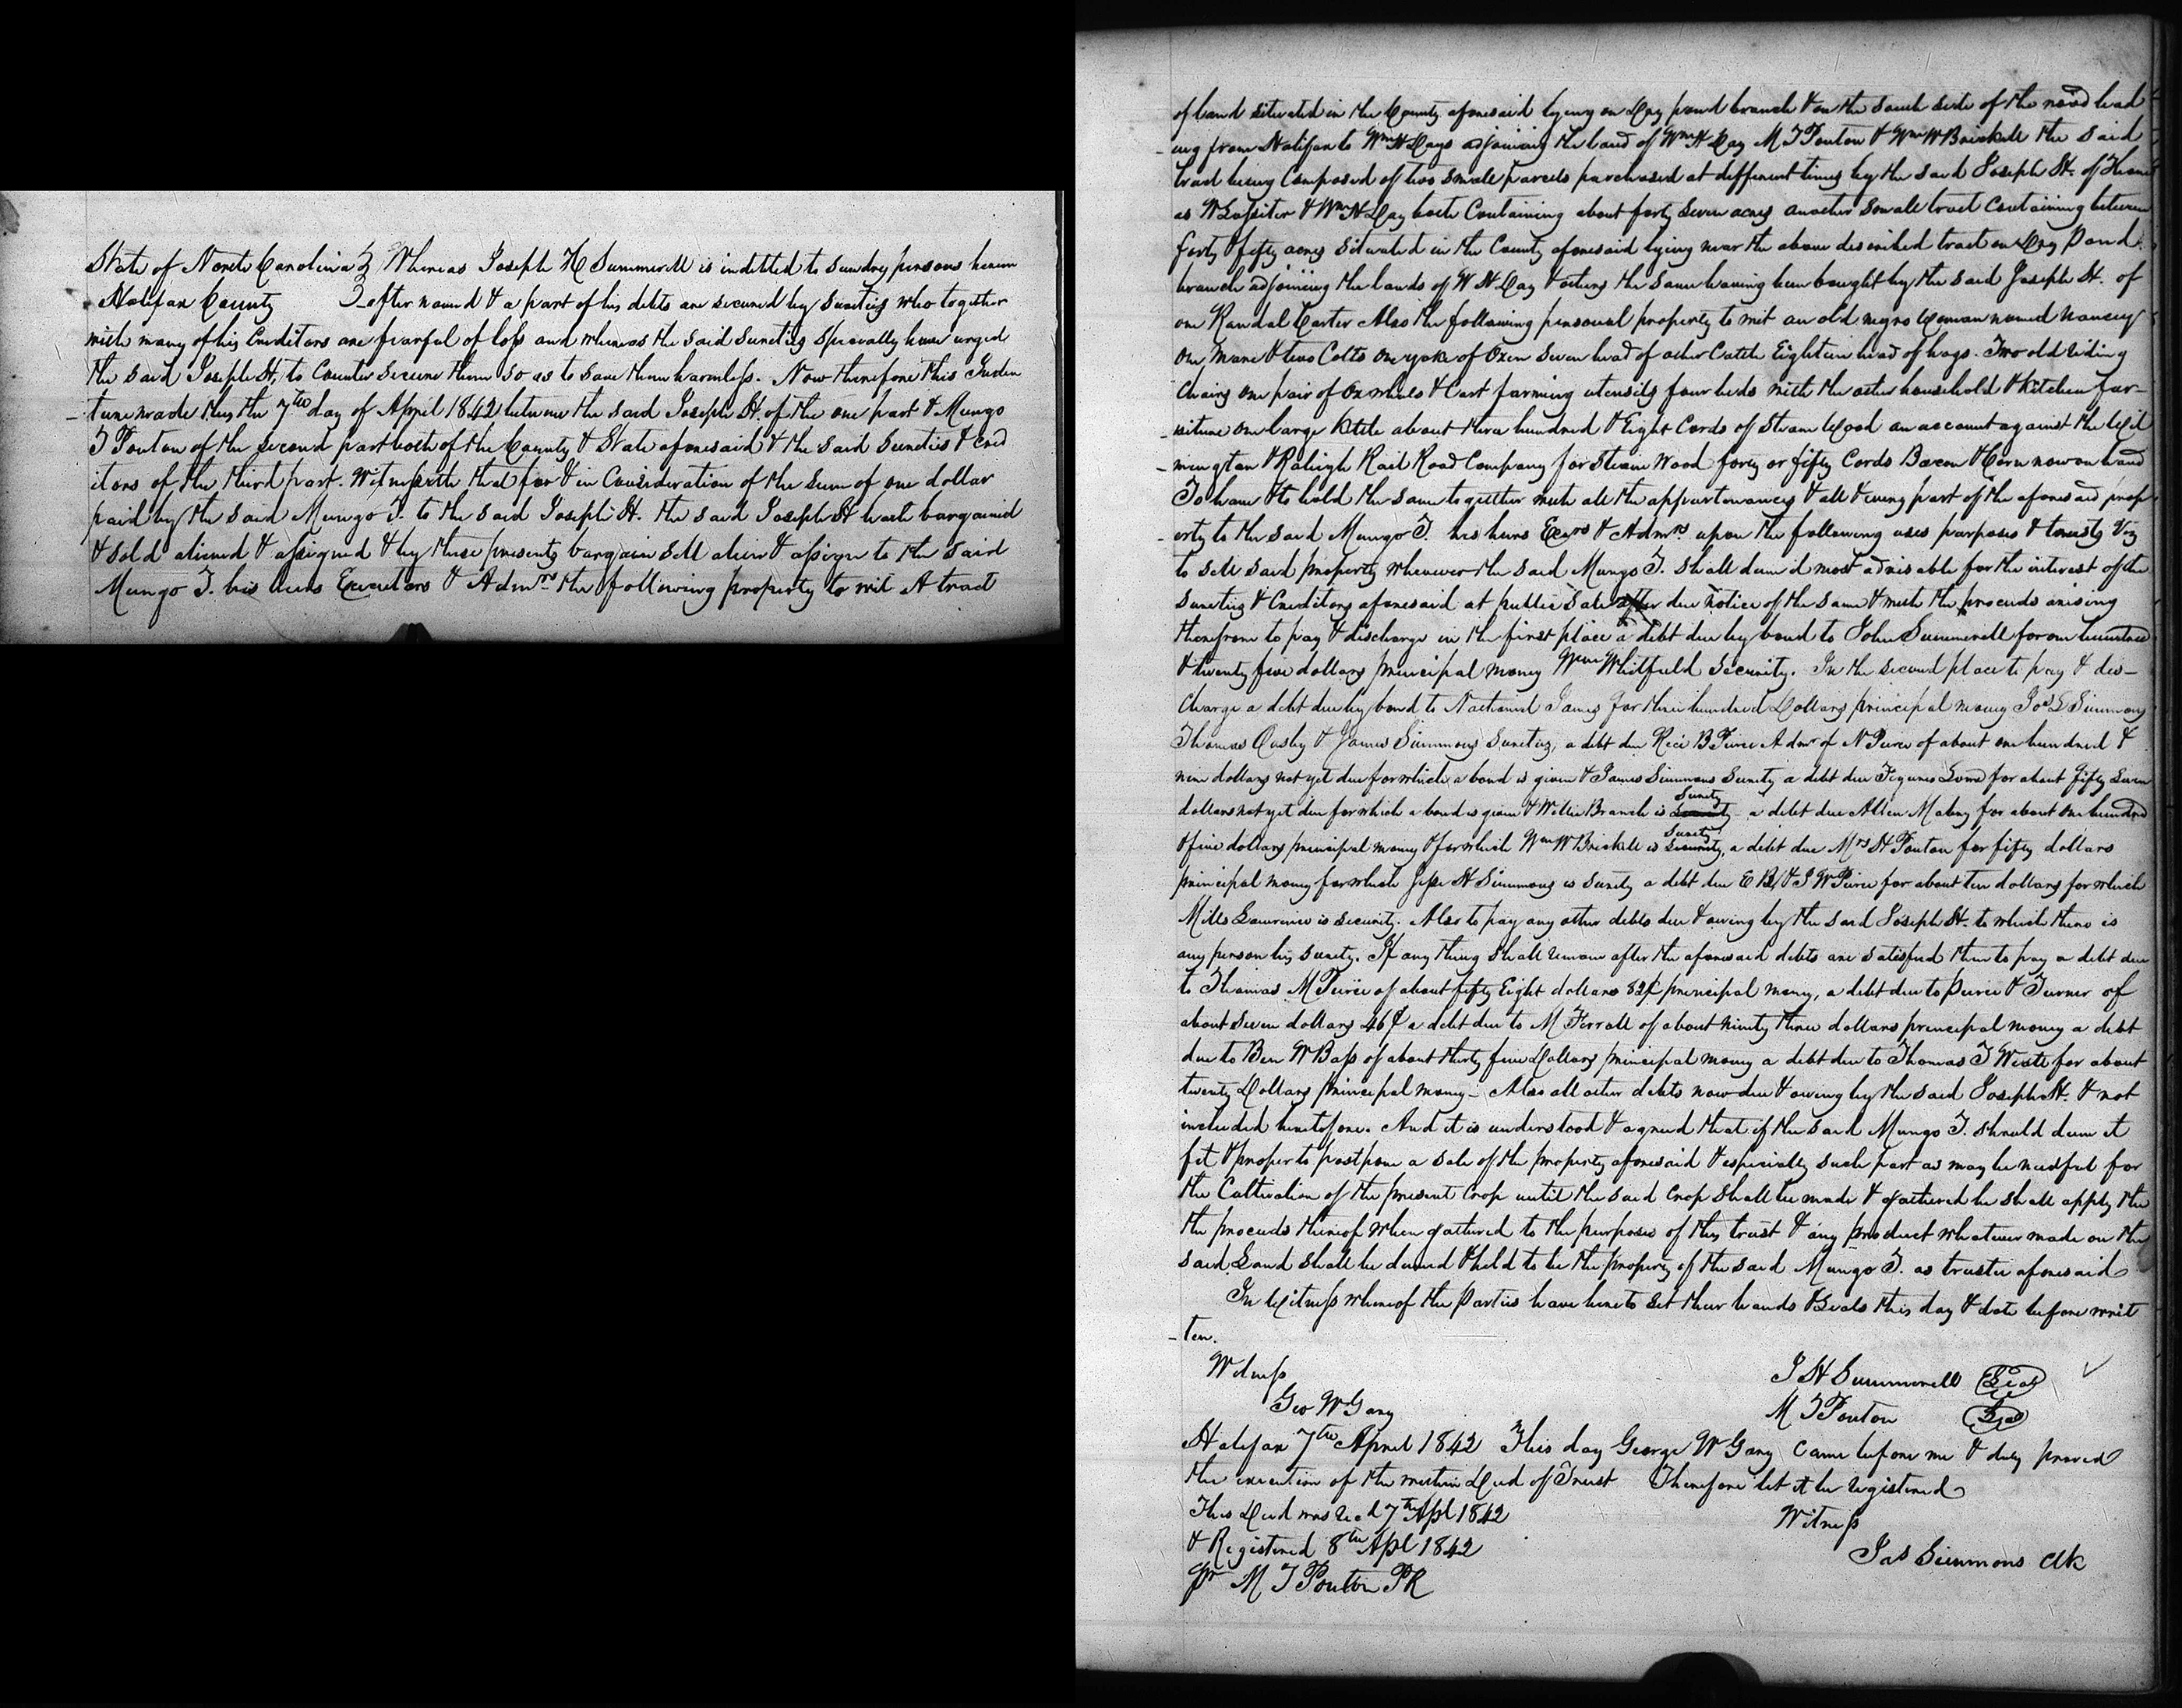 State of North Carolina } Whereas Joseph H Summerell is indebted to sundry persons herein
Halifax County } after named & a part of his debts are secured by sureties who together
with many of his Creditors are fearful of loss and whereas the said sureties specially have urged
the said Joseph H, to Counter secure them so as to save them harmless. Now therefore this Inden
ture made this the 7th day of April 1842 between the said Joseph H. of the one part & Mungo
T Ponton of the second part both of the County & State aforesaid & the said sureties & cred
itors of the third part. Witnesseth that for & in Consideration of the sum of one dollar
paid by the said Mungo T. to the said Joseph H. the said Joseph H hath bargained
& sold aliened & assigned & by these presents bargain sell alien & assign to the said
Mungo T. his heirs Executors & Admrs the following property to wit A tract
of land situated in the County aforesaid lying on Dry pond branch & on the south side of the road lead
ing from Halifax to Wm H Days adjoining the land of Wm H Day M T Ponton & Wm W Brickell the said
tract being Composed of two small parcels purchased at different times by the said Joseph H. of Thom
as W Lassiter & Wm H Day both Containing about forty seven acres another small tract containing between
forty & fifty acres situated in the County aforesaid lying near the above described tract on Dry Pond
branch adjoining the lands of W H Day & others the same having been bought by the said Joseph H. of
one Randal Carter Also the following personal property to wit an old negro woman named Nancy
One Mare & two Colts one yoke of Oxen seven head of other Cattle Eighteen head of hogs. Two old riding
Chairs one pair of Ox wheels & Cart farming utensils four beds with the other household & kitchen fur-
niture one large kettle about three hundred & Eight Cords of Steam Wood an account against the Wil
mington & Raleigh Rail Road Company for Steam Wood forty or fifty Cords Bacon & Corn now on hand
To have & to hold the same together with all the appurtenances & all & every part of the aforesaid prop
erty to the said Mungo T. his heirs Exrs & Admrs upon the following uses purposes & trusts Viz
to sell said property whenever the said Mungo T. shall deem it most advisable for the interest of the
sureties & Creditors aforesaid at public sale after due notice of the same & with the proceeds arising
therefrom to pay & discharge in the first place a debt due by bond to John Summerell for one hundred
& twenty five dollars principal money Wm Whitfield Security. In the second place to pay & dis-
charge a debt due by bond to Nathaniel James for three hundred Dollars principal money Jos L Simmons
Thomas Ousby & James Simmons sureties, a debt due Rice B Pierce Admr of N Pierce of about one hundred &
nine dollars not yet due for which a bond is given & James Simmons Surety a debt due Figures Lowe for about fifty seven
dollars not yet due for which a bond is given & Willie Branch is Surety a debt due Allen Mabry for about one hundred
& five dollars principal money & for which Wm W Brickell is Surety, a debt due Mrs H Ponton for fifty dollars
principal money for which Jesse H Simmons is surety a debt due E B & S W Pierce for about ten dollars for which
Mills Lawrence is security. Also to pay any other debts due & owing by the said Joseph H. to which there is
any person his surety. If any thing shall remain after the aforesaid debts are satisfied then to pay a debt due
to Thomas M Pierce of about fifty Eight dollars 82¢ principal money, a debt due to Pierce & Turner of
about seven dollars 46¢ a debt due to M Ferrall of about ninety three dollars principal money a debt
due to Ben W Bass of about thirty five Dollars principal money a debt due to Thomas T Wiatt for about
twenty Dollars principal money - Also all other debts now due & owing by the said Joseph H. & not
included heretofore. And it is understood & agreed that if the said Mungo T. should deem it
fit & proper to postpone a sale of the property aforesaid & especially such part as may be needful for
the Cultivation of the present Crop until the said Crop shall be made & gathered he shall apply the
the proceeds thereof when gathered to the purposes of this trust & any product whatever made on the
said Land shall be deemed & held to be the property of the said Mungo T. as trustee aforesaid
In Witness whereof the Parties have hereto set their hands & Seals this day & date before writ
-ten.
Witness
J H Summerell Seal
Geo W Gary
M T Ponton Seal
Halifax 7th April 1842 This day George W Gary came before me & duly proved
the execution of the within Deed of Trust Therefore let it be registered
This Deed was Recd 7th Apl 1842
Witness
& Registered 8th Apl 1842
Jas Simmons Clk
Pr M T Ponton PR